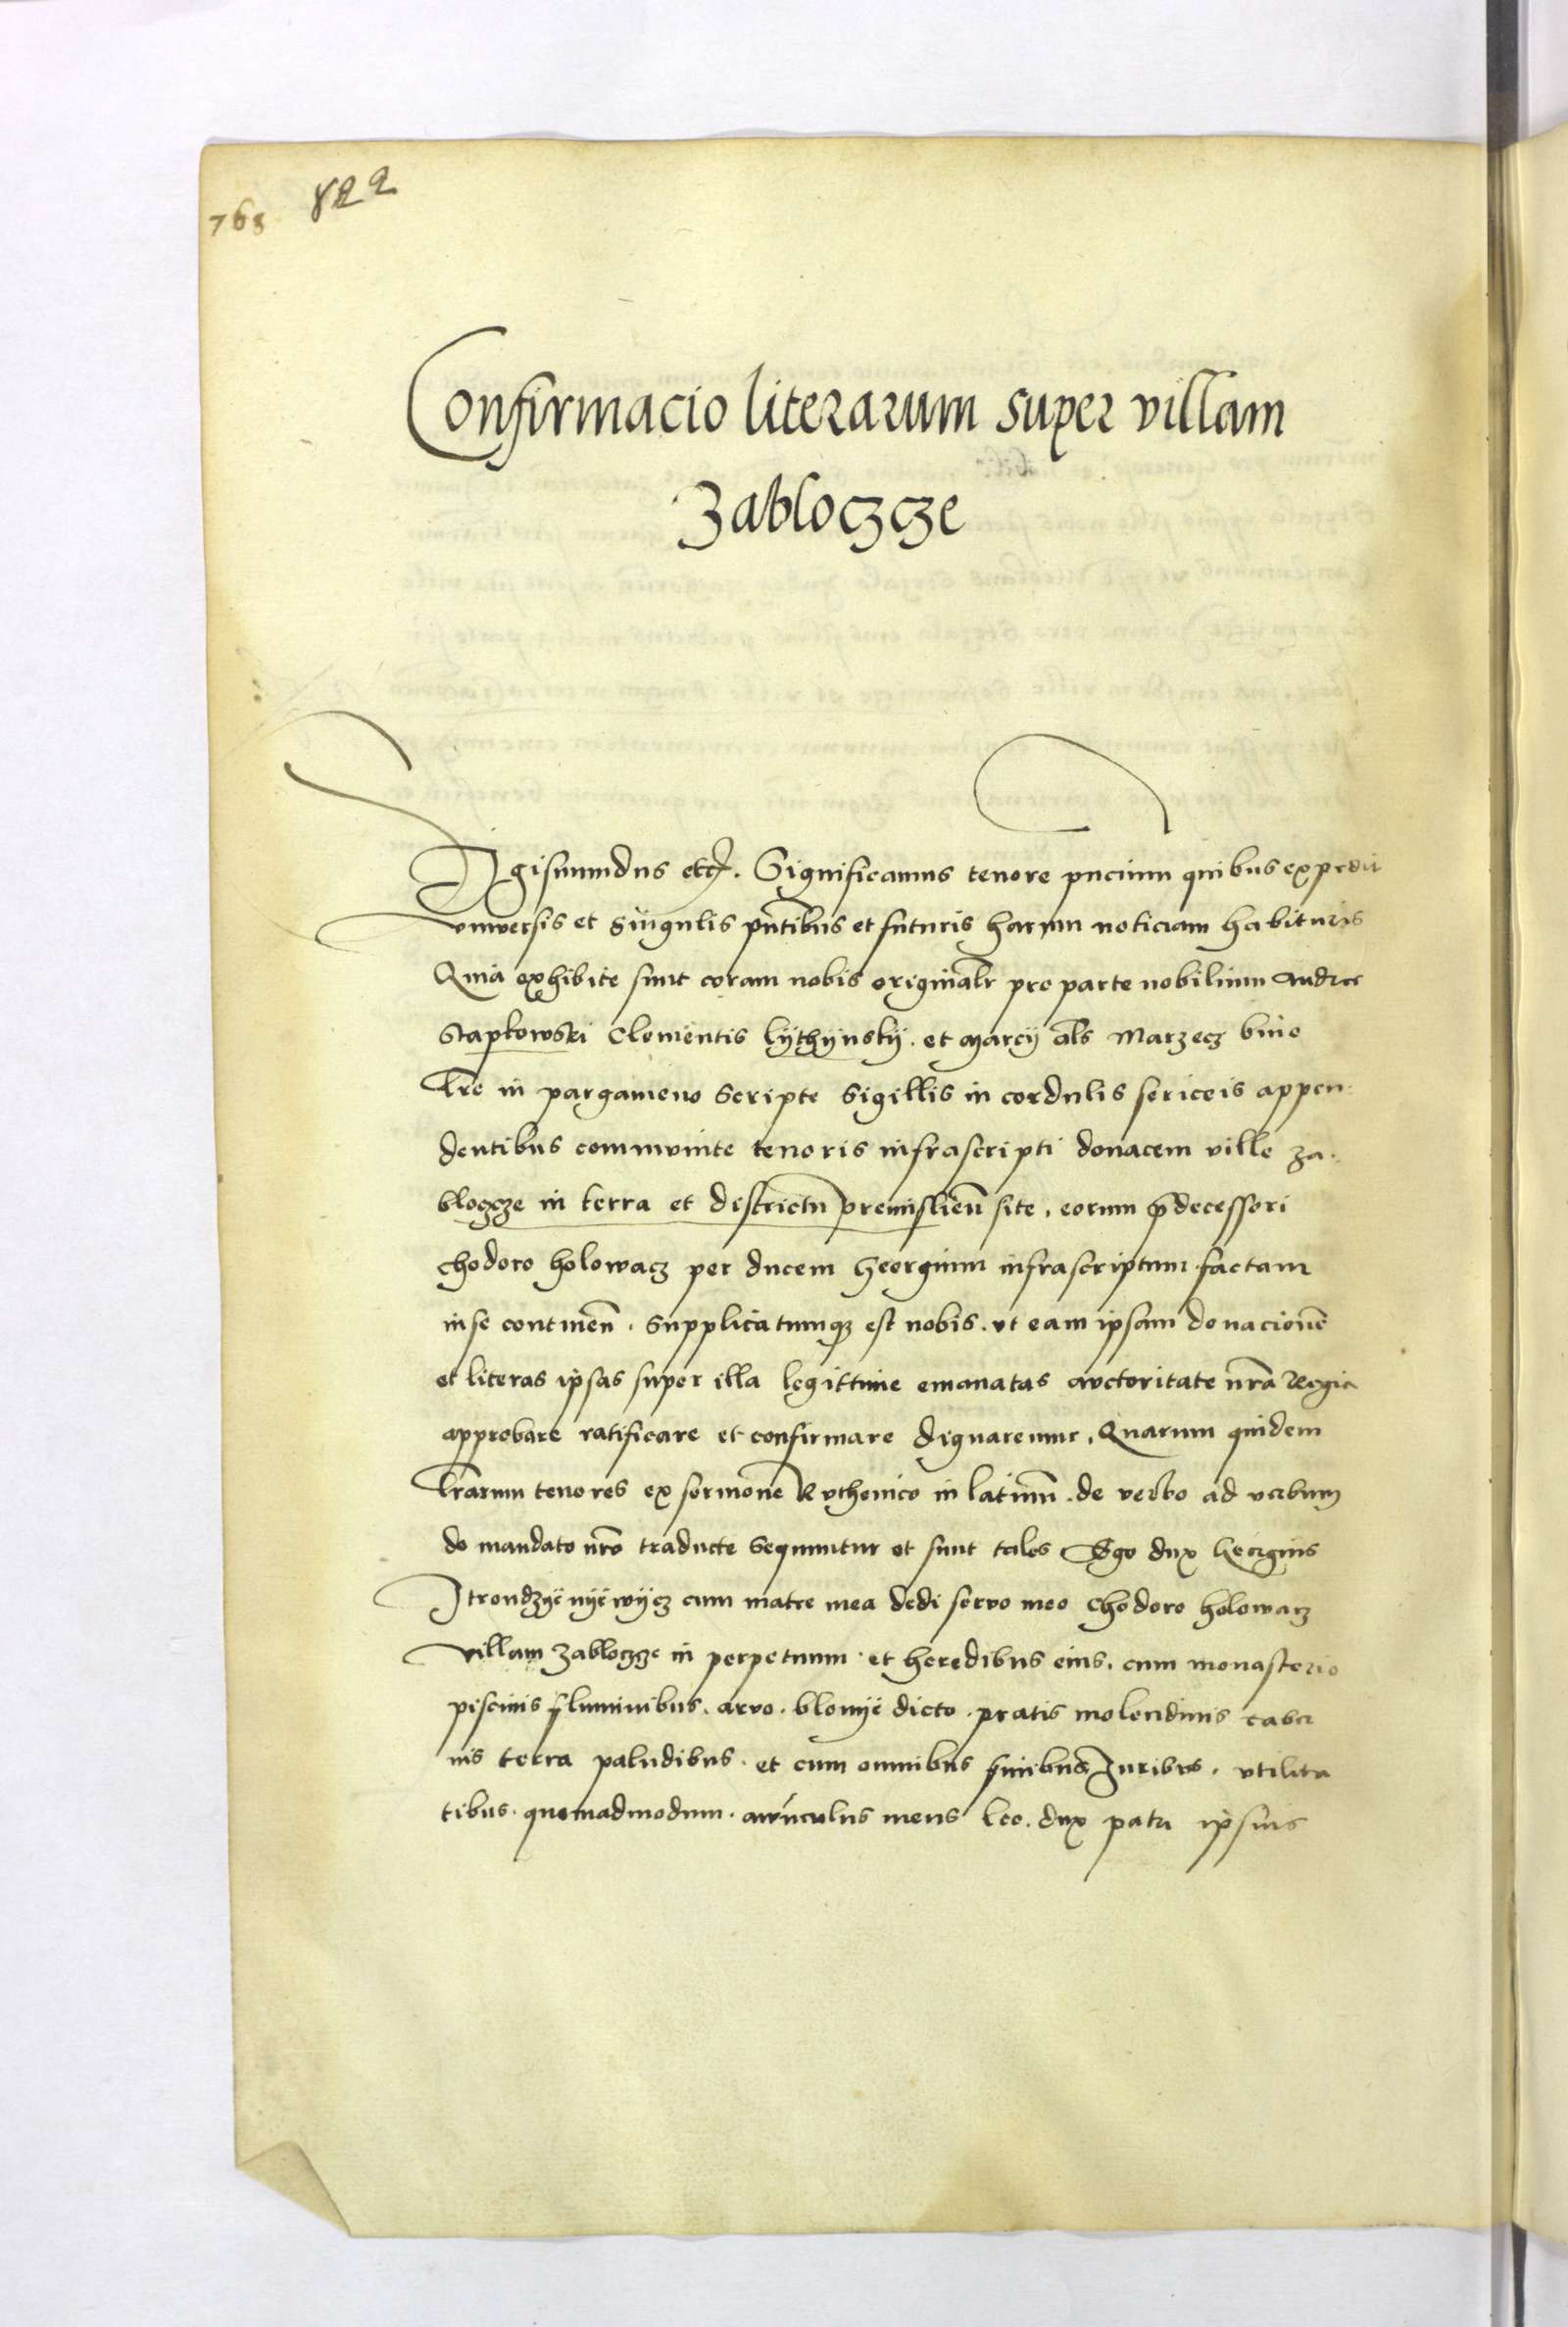 822
768
Confirmacio literarum super villam
Zabloczcze
Sigismundus etc. Significamus tenore pncium quibus expedit
vniversis et singulis pntibus et futuris harum noticiam habituris
Quia exhibite sunt coram nobis originalr pro parte nobilium Andree
Stapkowski Clementis Lythynsky. et Marcy als Marzecz bine
lre in pargameno scripte sigillis in cordulis sericeis appen
dentibus communite tenoris infrascripti donacem ville Za
bloczcze in terra et districtu premislien site. eorum predecessori
Chodoro holowacz per ducem Georgium infrascriptum factam
in se continen. Supplicatumqz est nobis. vt eam ipsam donacione
et literas ipsas super illa legittime emanatas avctoritate nra Regia
approbare ratificare et confirmare dignaremur. Quarum quidem
lrarum tenores ex sermone Rvthenico in latinum. de verbo ad verbum
de mandato nro traducte sequuntur et sunt tales Ego dux Georgius
cum matre mea dedi servo meo Chodoro holowacz
villam Zabloczcze in perpetuum. et heredibus eius. cum monasterio
piscinis fluminibus. arvo. blonye dicto. pratis molendinis taber
nis terra paludibus. et cum omnibus finibus Juribus. vtilita
tibus. quemadmodum. avunculus meus Leo. dux ipsius